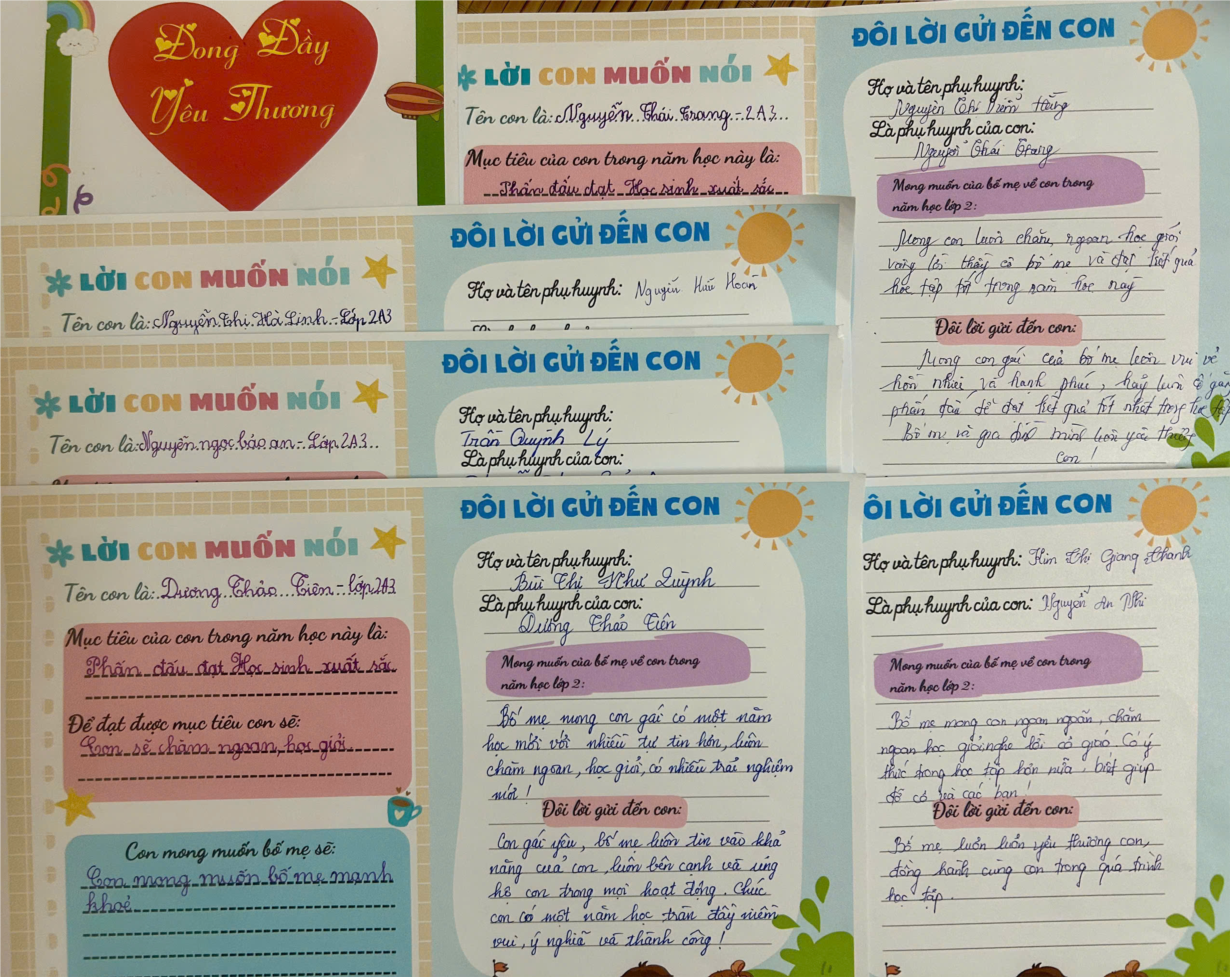 Đong Đầy
Yêu Thương
LỜI CON MUỐN NÓI
Tên con là: Nguyễn Thái Trang - 2A3
Mục tiêu của con trong năm học này là:
Phấn đấu đạt Học sinh xuất sắc
ĐÔI LỜI GỬI ĐẾN CON
Họ và tên phụ huynh:
Nguyễn Thị Hằng
Là phụ huynh của con:
Nguyễn Thái Trang
Mong muốn của bố mẹ về con trong
năm học lớp 2:
Mong con luôn chăm, ngoan học giỏi
vâng lời thầy cô bố mẹ và đạt kết quả
học tập tốt trong năm học này
Đôi lời gửi đến con:
Mong con gái của bố mẹ luôn vui vẻ
hồn nhiên và hạnh phúc, hãy luôn cố gắn
phấn đấu để đạt kết quả tốt nhất trong học
Bố mẹ và gia đình mình luôn yêu thương
con!
LỜI CON MUỐN NÓI
Tên con là: Nguyễn Thị Hà Linh - Lớp 2A3
ĐÔI LỜI GỬI ĐẾN CON
Họ và tên phụ huynh: Nguyễn Hữu Hoàn
LỜI CON MUỐN NÓI
Tên con là: Nguyễn ngọc bảo an - Lớp 2A3
ĐÔI LỜI GỬI ĐẾN CON
Họ và tên phụ huynh:
Trần Quỳnh Lý
Là phụ huynh của con:
LỜI CON MUỐN NÓI
Tên con là: Dương Thảo Tiên - lớp 2A3
Mục tiêu của con trong năm học này là:
Phấn đấu đạt Học sinh xuất sắc
Để đạt được mục tiêu con sẽ:
Con sẽ chăm ngoan, học giỏi
Con mong muốn bố mẹ sẽ:
Con mong muốn bố mẹ mạnh
khoẻ
ĐÔI LỜI GỬI ĐẾN CON
Họ và tên phụ huynh:
Bùi Thị Như Quỳnh
Là phụ huynh của con:
Dương Thảo Tiên
Mong muốn của bố mẹ về con trong
năm học lớp 2:
Bố mẹ mong con gái có một năm
học mới với nhiều tự tin hơn, luôn
chăm ngoan, học giỏi, có nhiều trải nghiệm
mới!
Đôi lời gửi đến con:
Con gái yêu, bố mẹ luôn tin vào khả
năng của con, luôn bên cạnh và ủng
hộ con trong mọi hoạt động. Chúc
con có một năm học tràn đầy niềm
vui, ý nghĩa và thành công!
ÔI LỜI GỬI ĐẾN CON
Họ và tên phụ huynh: Kim Thị Giang Thanh
Là phụ huynh của con: Nguyễn An Nhi
Mong muốn của bố mẹ về con trong
năm học lớp 2:
Bố mẹ mong con ngoan ngoãn, chăm
ngoan học giỏi, nghe lời cô giáo. Có ý
thức trong học tập hơn nữa, biết giúp
đỡ cô và các bạn!
Đôi lời gửi đến con:
Bố mẹ luôn luôn yêu thương con,
đồng hành cùng con trong quá trình
học tập.